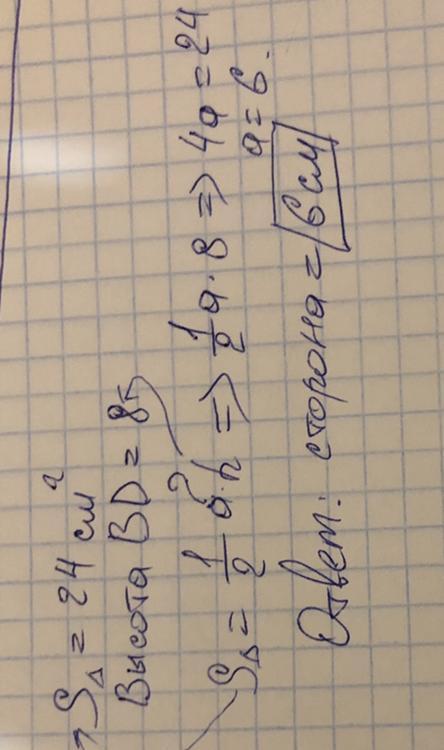 S△ = 24 см²
Высота BD = 8
S△ = 1/2 a · h => 1/2 a · 8 => 4a = 24
a = 6.
Ответ: сторона = 6 см